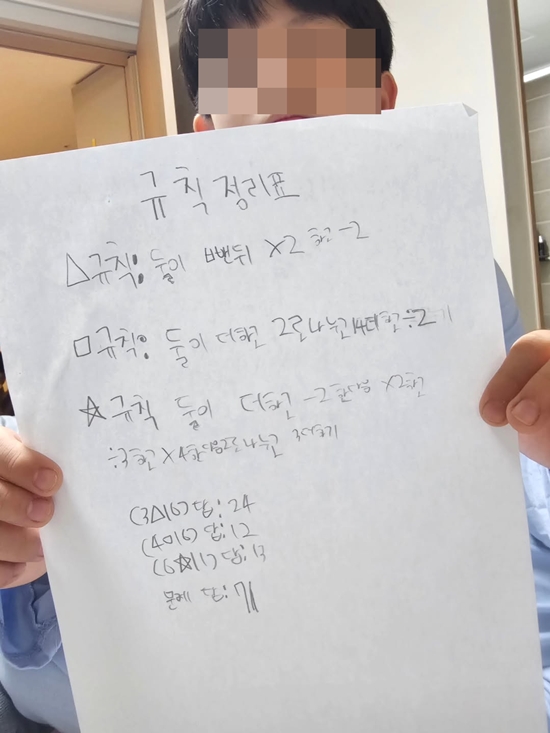 규칙정리표
△규칙: 둘이 뺀뒤 ×2 하고 -2
□규칙: 둘이 더하고 2로나누고 14더하고 ÷2
☆규칙 둘이 더하고 -2 한다음 ×2하고
÷3하고 ×4한다음2로나누고 3더하기
(3△16) 답: 24
(4□16) 답: 12
(6☆11) 답: 13
문제 답: